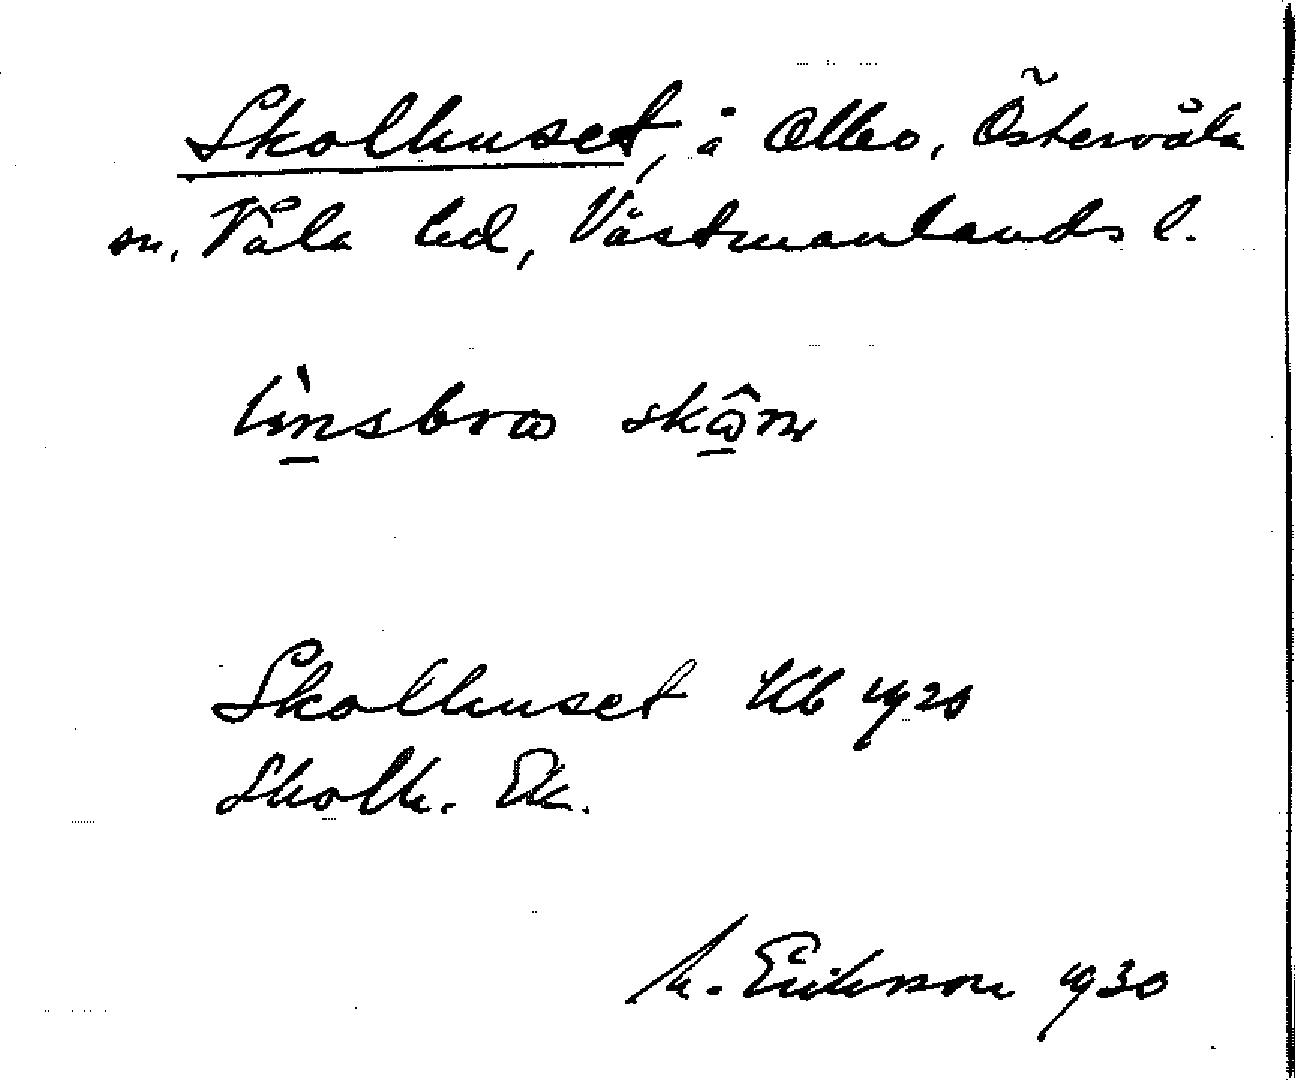 Skolhuset, å Ollbo, Östervåla
sn, Våla hd, Västmanlands l.
linsbroa skôn
Skolhuset Kb 1920
Skolh. Ek.
M. Eriksson 1930